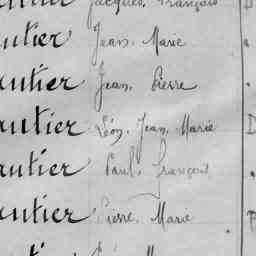 Jacques, François
autier Jean, Marie
autier Jean, Pierre
autier Léon, Jean, Marie
autier Paul, François
autier Pierre, Marie